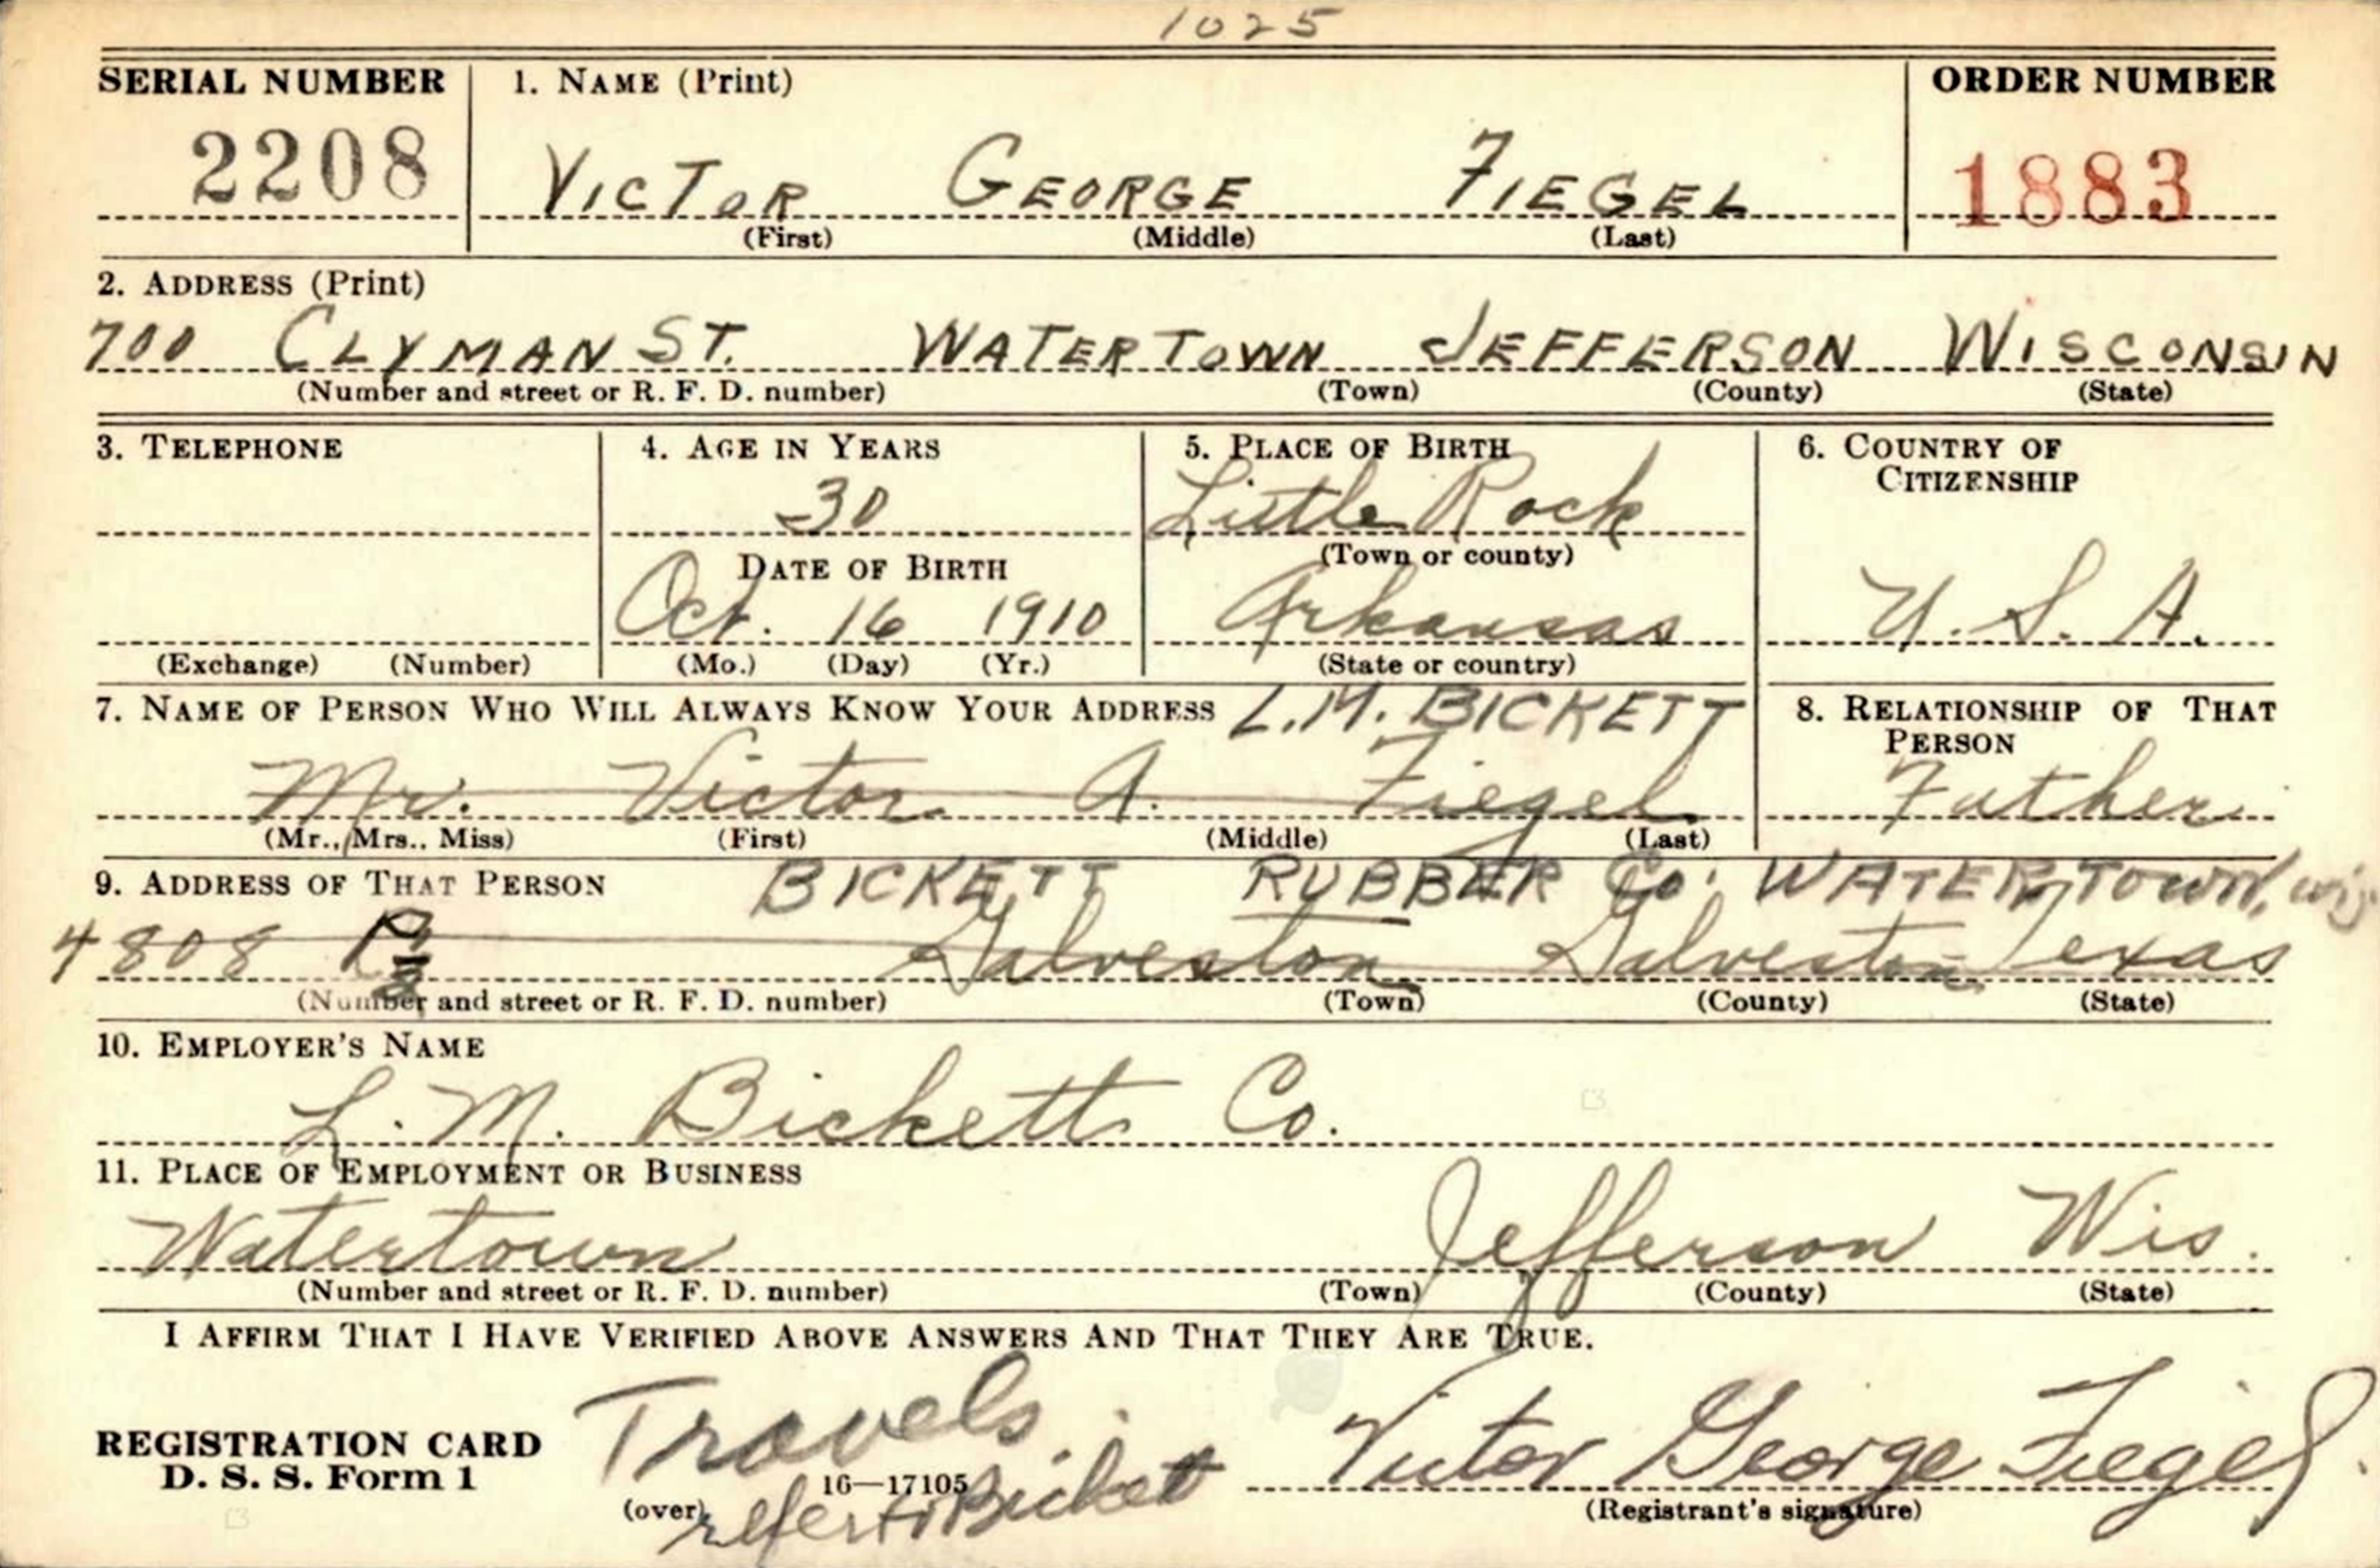 1025
SERIAL NUMBER 1. NAME (Print) ORDER NUMBER
2208 VICTOR GEORGE FIEGEL 1883
(First) (Middle) (Last)
2. ADDRESS (Print)
700 CLYMAN ST. WATERTOWN JEFFERSON WISCONSIN
(Number and street or R. F. D. number) (Town) (County) (State)
3. TELEPHONE 4. AGE IN YEARS 5. PLACE OF BIRTH 6. COUNTRY OF
CITIZENSHIP
30 Little Rock
DATE OF BIRTH (Town or county)
Oct. 16 1910 Arkansas U. S. A.
(Exchange) (Number) (Mo.) (Day) (Yr.) (State or country)
7. NAME OF PERSON WHO WILL ALWAYS KNOW YOUR ADDRESS L.M. BICKETT 8. RELATIONSHIP OF THAT
PERSON
Mr. Victor A. Fiegel Father
(Mr., Mrs., Miss) (First) (Middle) (Last)
9. ADDRESS OF THAT PERSON BICKETT RUBBER Co. WATERTOWN, Wis.
4808 Galveston Galveston Texas
(Number and street or R. F. D. number) (Town) (County) (State)
10. EMPLOYER'S NAME
L. M. Bickett Co.
11. PLACE OF EMPLOYMENT OR BUSINESS
Watertown Jefferson Wis.
(Number and street or R. F. D. number) (Town) (County) (State)
I AFFIRM THAT I HAVE VERIFIED ABOVE ANSWERS AND THAT THEY ARE TRUE.
Travels
REGISTRATION CARD Victor George Fiegel
D. S. S. Form 1 16—17105
(over) refer to Bickett (Registrant's signature)